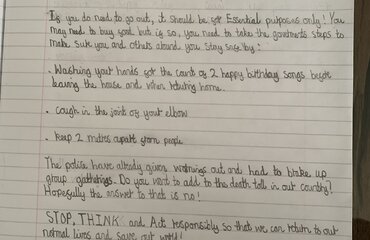 If you do need to go out, it should be for Essential purposes only! You
may need to buy food but if so, you need to take the goverments steps to
make sure you and others around you stay safe by:
• Washing your hands for the count of 2 happy birthday songs before
leaving the house and when returning home.
• cough in the joint of your elbow
• keep 2 metres apart from people
The police have already given warnings out and had to brake up
group gatherings. Do you want to add to the death toll in our country?
Hopefully the answer to that is no!
STOP, THINK and Act responsibly so that we can return to our
normal lives and save our world!